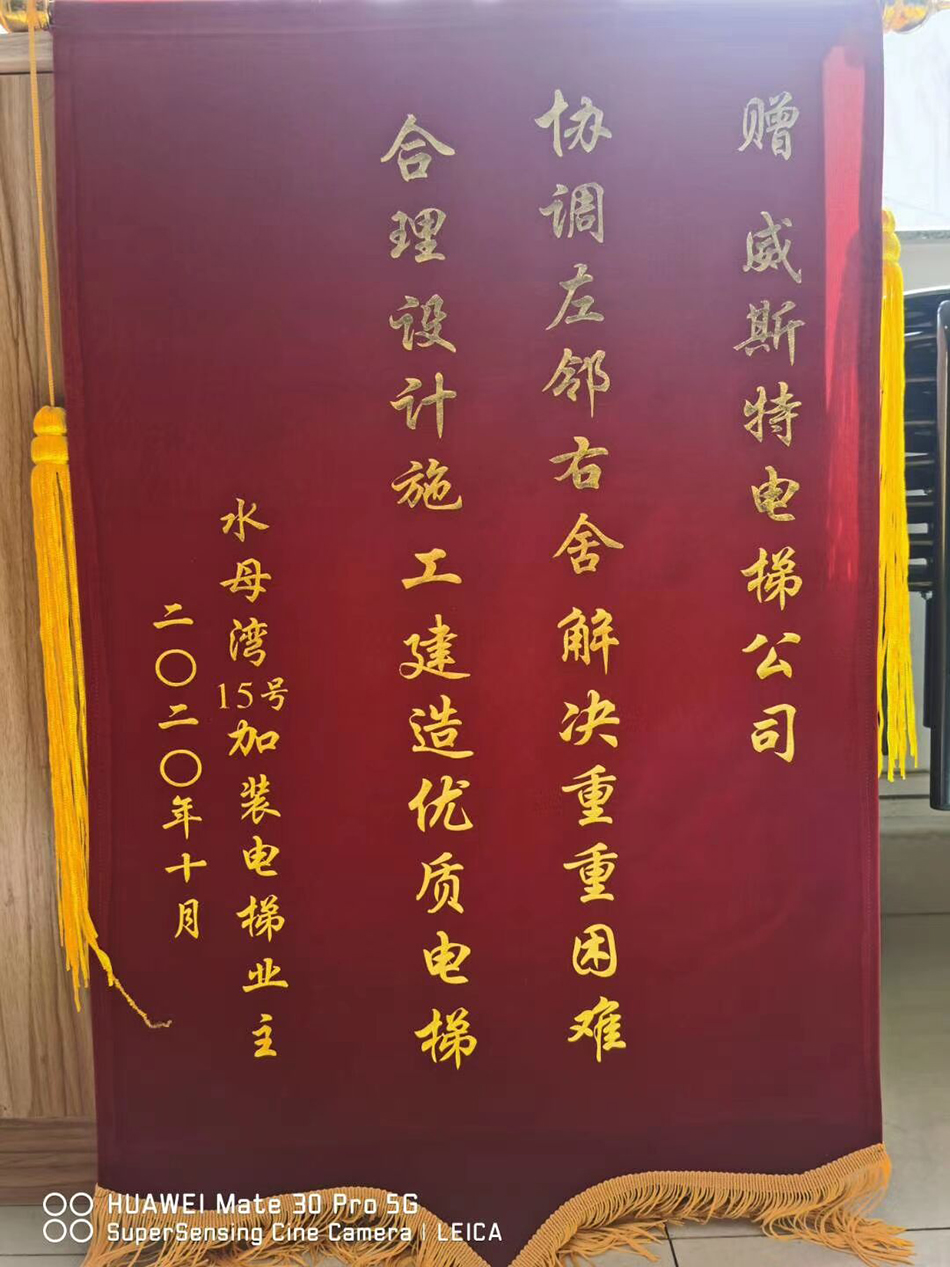 赠 威斯特电梯公司
协调左邻右舍 解决重重困难
合理设计施工建造优质电梯
水母湾15号加装电梯业主
二〇二〇年十月
HUAWEI Mate 30 Pro 5G
SuperSensing Cine Camera | LEICA